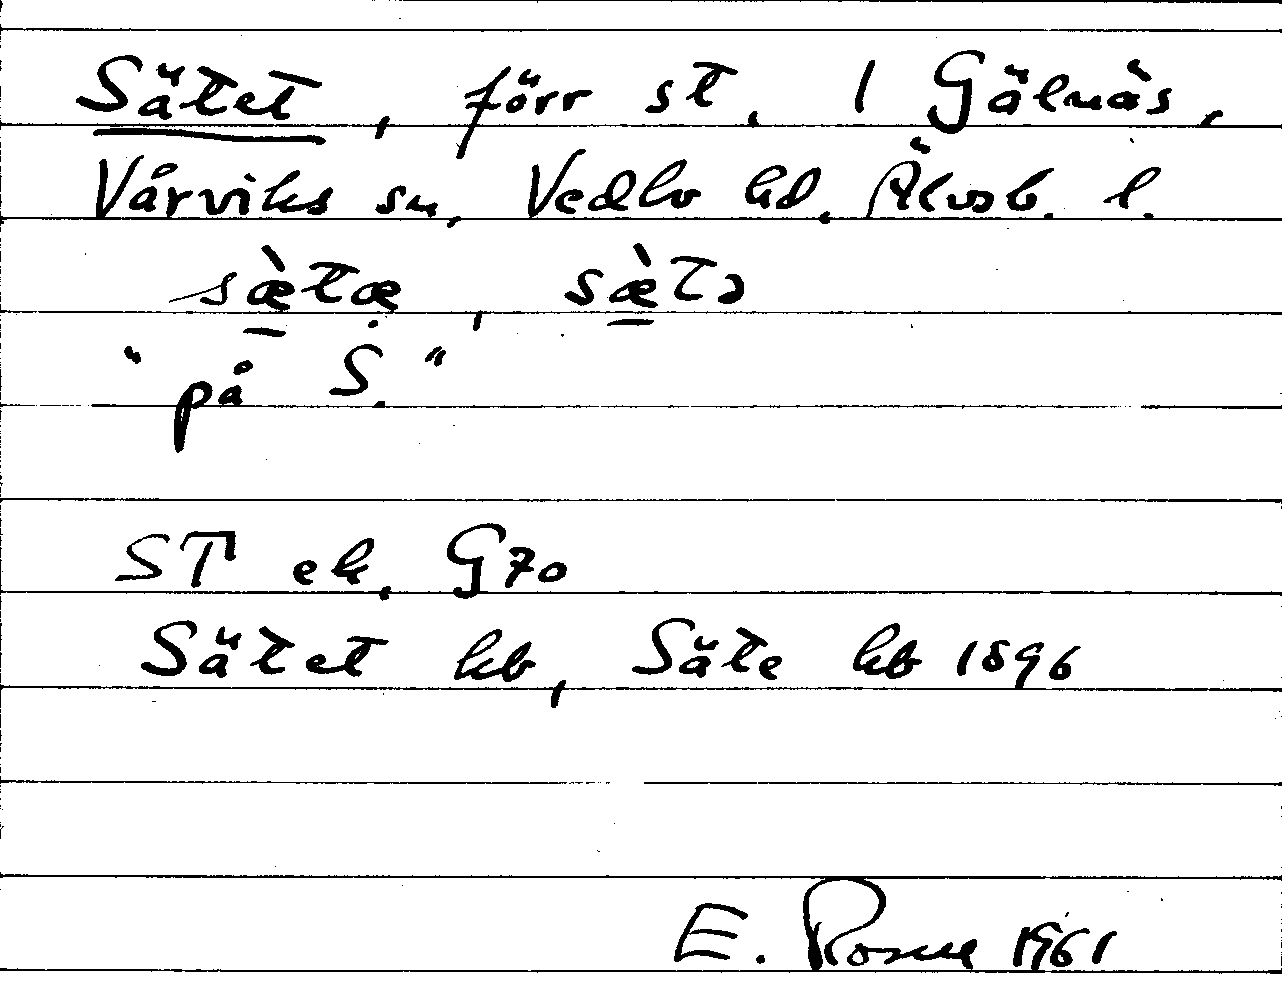 Sätet, förr st. 1 Gälnäs,
Vårviks sn, Vedbo hd. Älvsb. l.
sæ̀tæ, sæ̀tə
"på S."
ST ek. G70
Sätet kb, Säte kb 1896
E. 1961